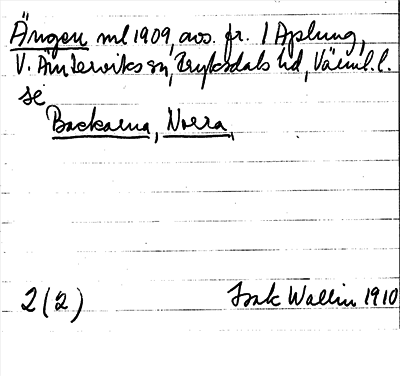 Ängen ml 1909, avs. fr. 1 Aplung,
V. Ämterviks sn, Fryksdals hd, Värml. l.
se
Backarna, Norra.
2(2) Isak Wallin 1910